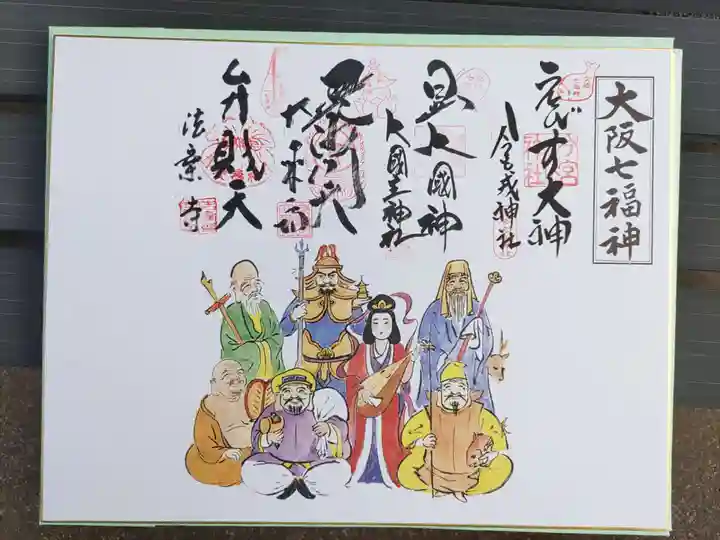 大阪七福神
ゑびす大神
今宮戎神社
大国神
大國主神社
毘沙門天
大乗坊
弁財天
法案寺